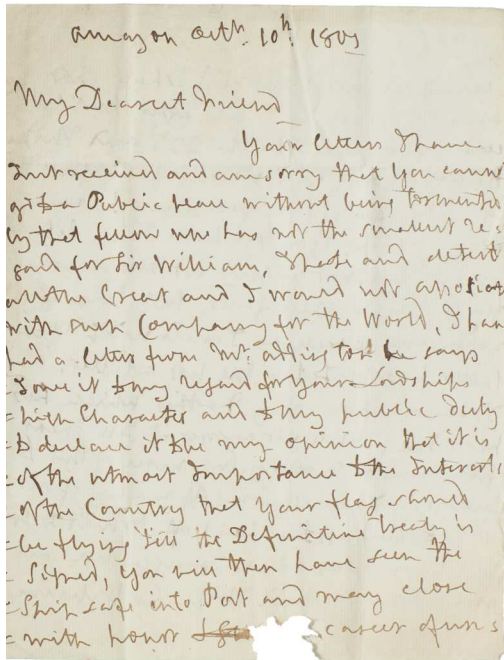 Amazon Octb. 10th. 1801
My Dearest Friend
Your letters I have
Just received and am sorry that you cannot
go to a Public place without being tormented
by that fellow who has not the smallest re=
gard for Sir William, I hate and detest
all the Great and I would not associate
with such Company for the World, I have
had a letter from Mr. Addington he says
= I owe it to my regard for Your Lordships
= high Character and to my public duty
= to declare it to be my opinion that it is
= of the utmost Importance to the Interests
= of the Country that Your flag should
= be flying till the Definitive Treaty is
= Signed, You will then have seen the
= Ship safe into Port and may close
= with honor career of uns